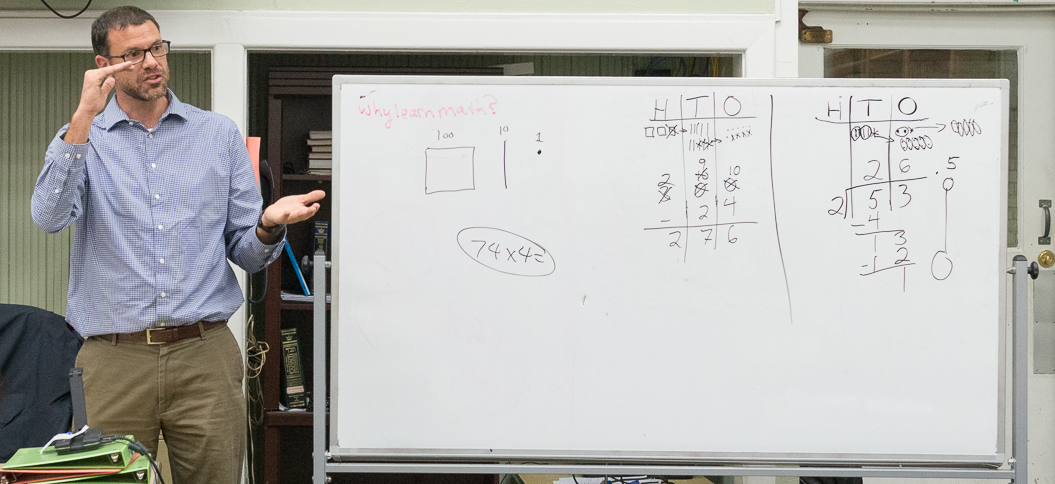 Why learn math?
100 10 1
74x4=
H T O
9
2 10 10
- 2 4
2 7 6
H T O
2 6 .5
2 5 3 0
- 4
1 3
- 1 2 0
1